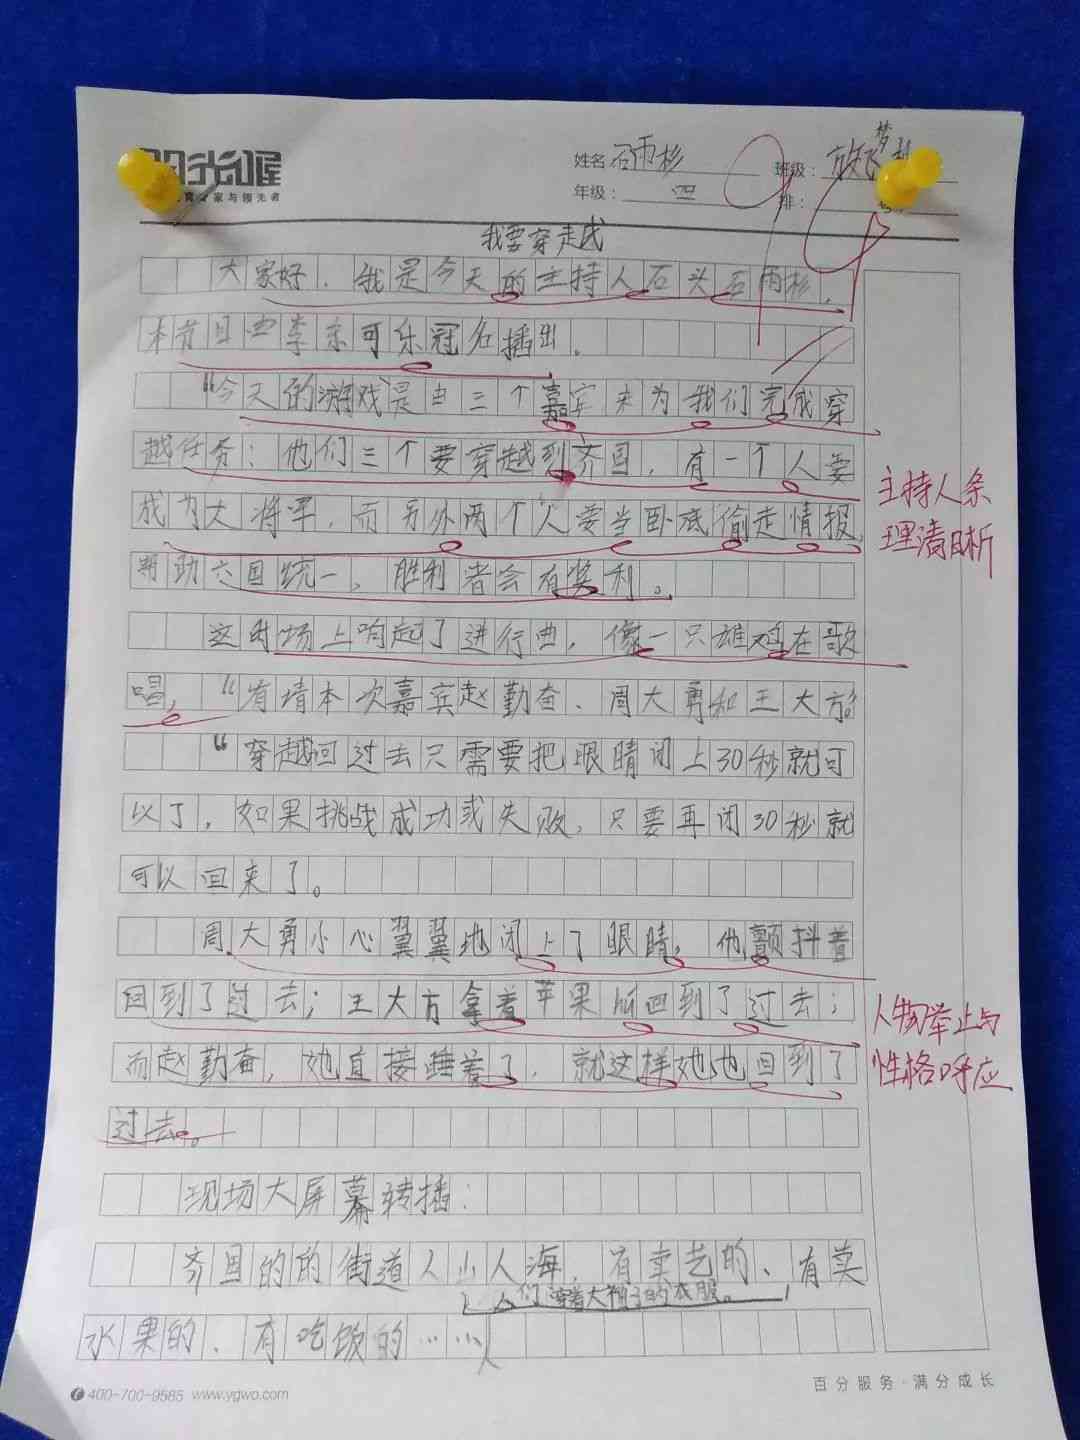 阳光喔
姓名 石雨杉 班级: 放飞梦想
年级: 四 排:
我要穿走戉
大家好,我是今天的主持人石头石雨杉,
本节目由李京可乐冠名播出.
“今天的游戏是由三个嘉宾来为我们完成穿
越任务:他们三个要穿越到齐国,有一个人要
成为大将军,而另外两个人要当卧底偷走情报,
帮助六国统一,胜利者会有奖利。
这时场上响起了进行曲,像一只雄鸡在歌
唱,“有请本次嘉宾赵勤奋、周大勇和王大方”
“穿越回过去只需要把眼睛闭上30秒就可
以了,如果挑战成功或失败,只要再闭30秒就
可以回来了。
周大勇小心翼翼地闭上了眼睛,他颤抖着
回到了过去;王大方拿着苹果后回到了过去;
而赵勤奋,她直接睡着了,就这样她也回到了
过去。
现场大屏幕转播:
齐国的的街道人山人海,有卖艺的、有卖
人们穿着大袖子的衣服。
水果的、有吃饭的……
主持人条
理清日析
人物举止与
性格呼应
400-700-9585 www.ygwo.com
百分服务·满分成长